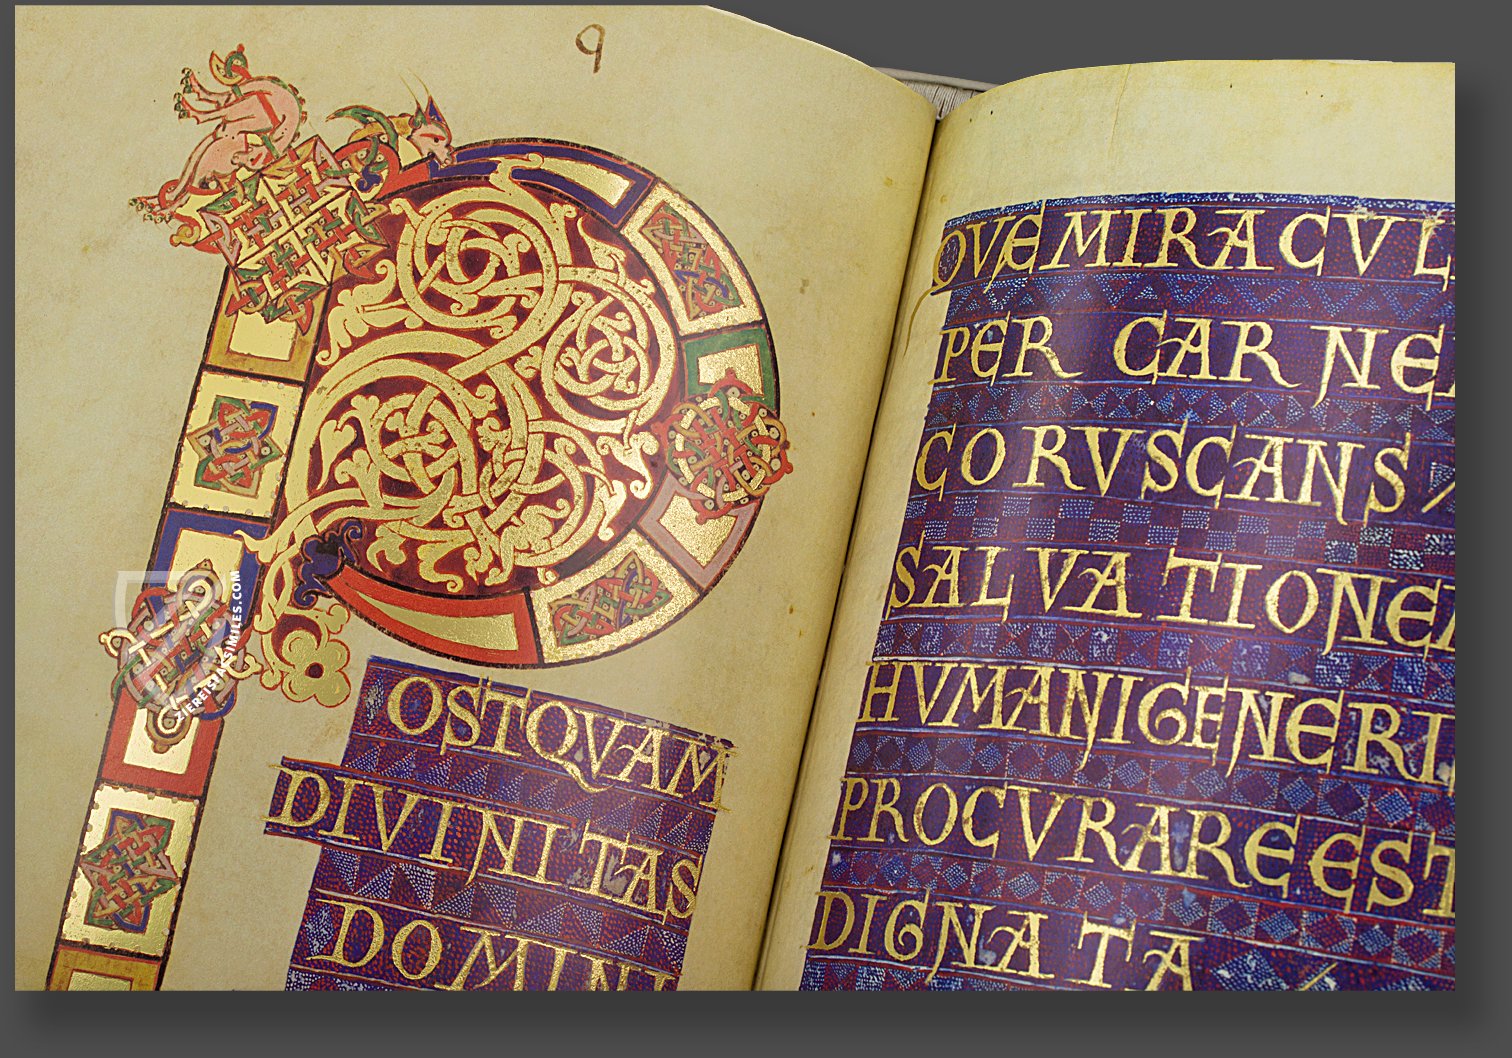 9
P
OSTQVAM
DIVINITAS
DOMINI
QVE MIRACVL
PER CARNE
CORVSCANS
SALVATIONE
HVMANIGENERI
PROCVRARE EST
DIGNATA
ZIEREIS FAKSIMILES.COM